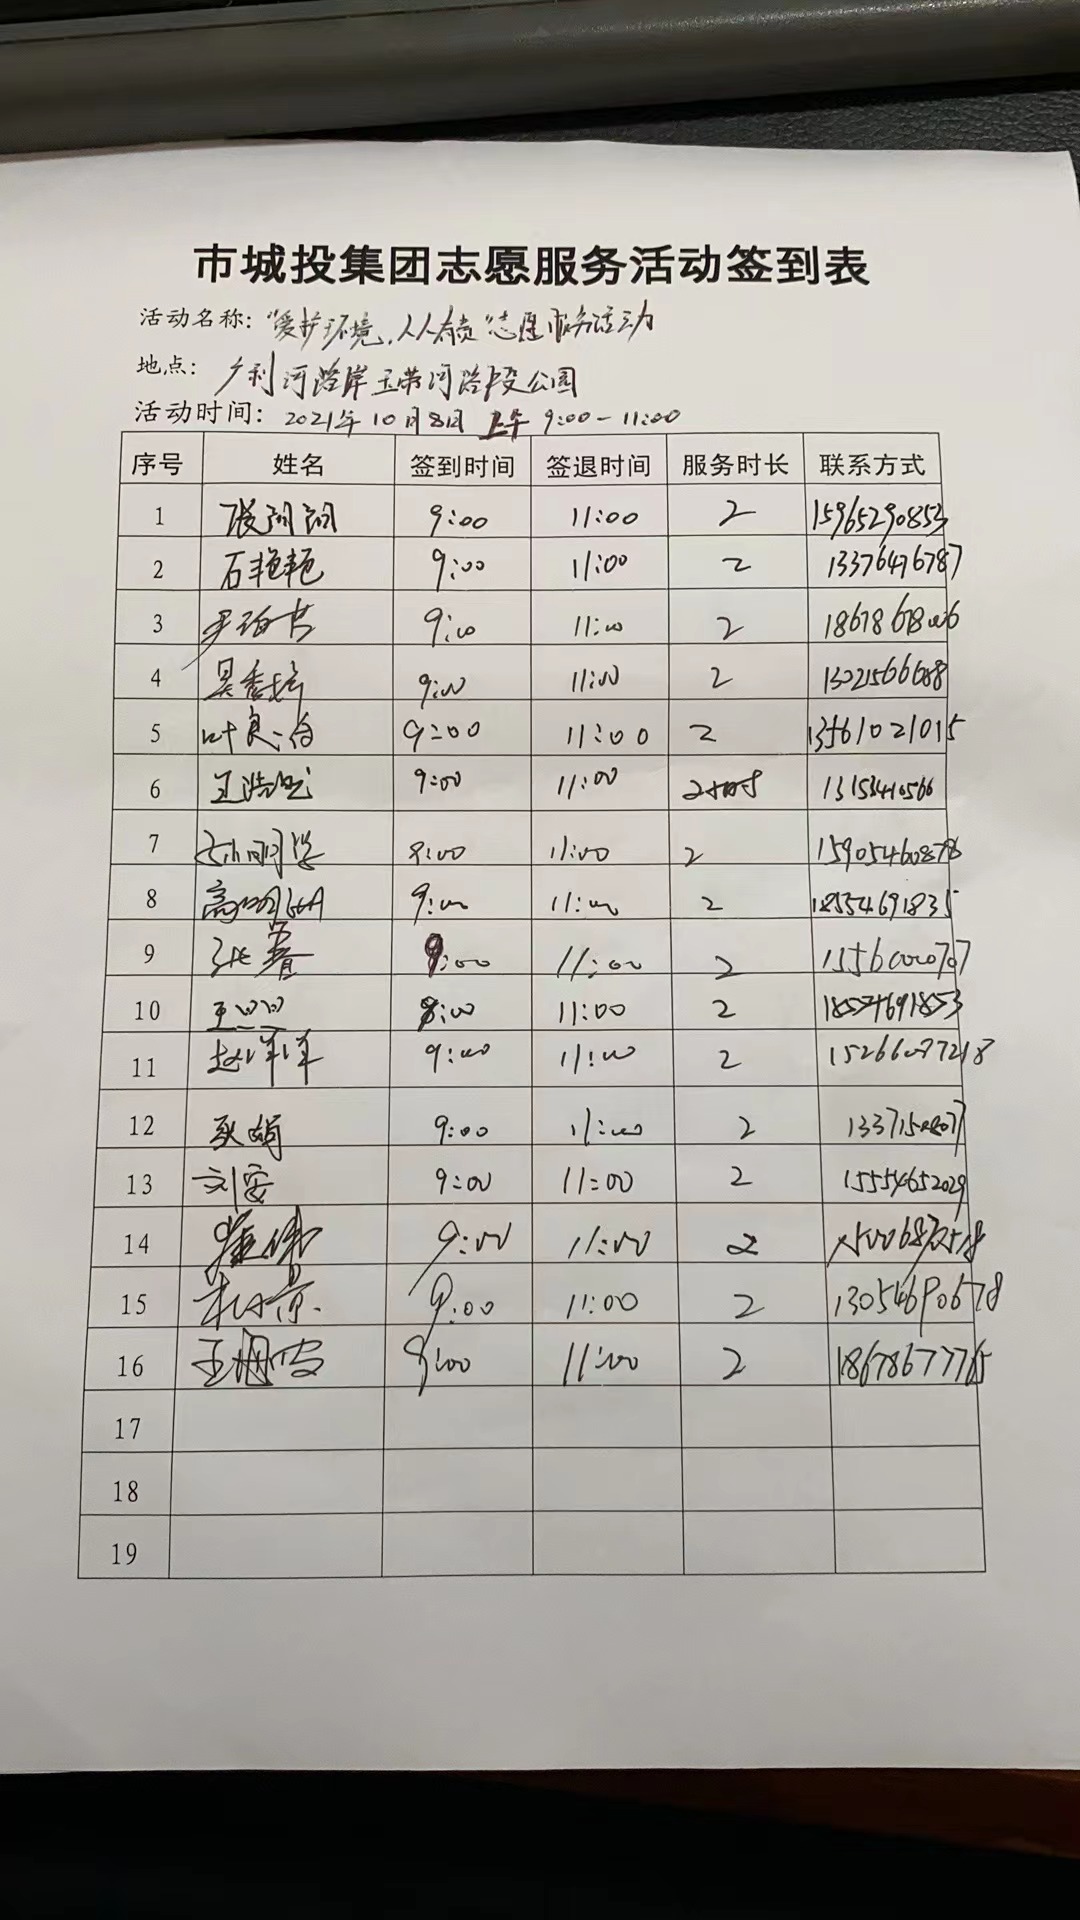 市城投集团志愿服务活动签到表
活动名称：“爱护环境，人人有责”志愿服务活动
地点：广利河沿岸玉带河路段公园
活动时间：2021年10月8日 上午 9:00-11:00
序号 姓名 签到时间 签退时间 服务时长 联系方式
1 9:00 11:00 2 15965290853
2 石艳艳 9:00 11:00 2 13376476787
3 9:00 11:00 2
4 9:00 11:00 2
5 9:00 11:00 2 13561021015
6 9:00 11:00 2小时
7 11:00 2 15905460878
8 9:00 11:00 2 18554691835
9 张赛 9:00 11:00 2
10 11:00 2 18554691853
11 赵洋洋 9:00 11:00 2 15266097218
12 耿娟 9:00 11:00 2
13 刘安 9:00 11:00 2 15554652029
14 9:00 11:00 2
15 9:00 11:00 2 13054690678
16 9:00 11:00 2 18678677765
17
18
19